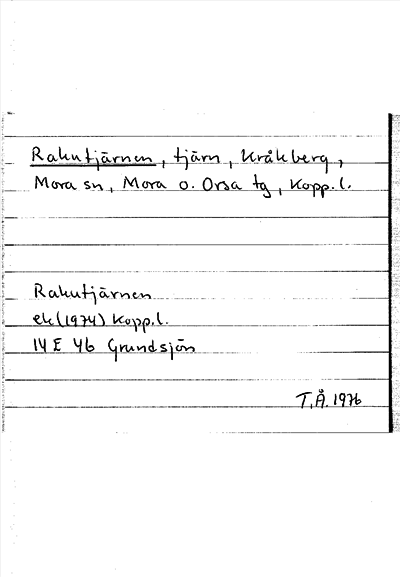 Rakutjärnen, tjärn, Kråkberg,
Mora sn, Mora o. Orsa tg, Kopp. l.
Rakutjärnen
ek (1974) Kopp. l.
14 E 4b Grundsjön
T.Å. 1976